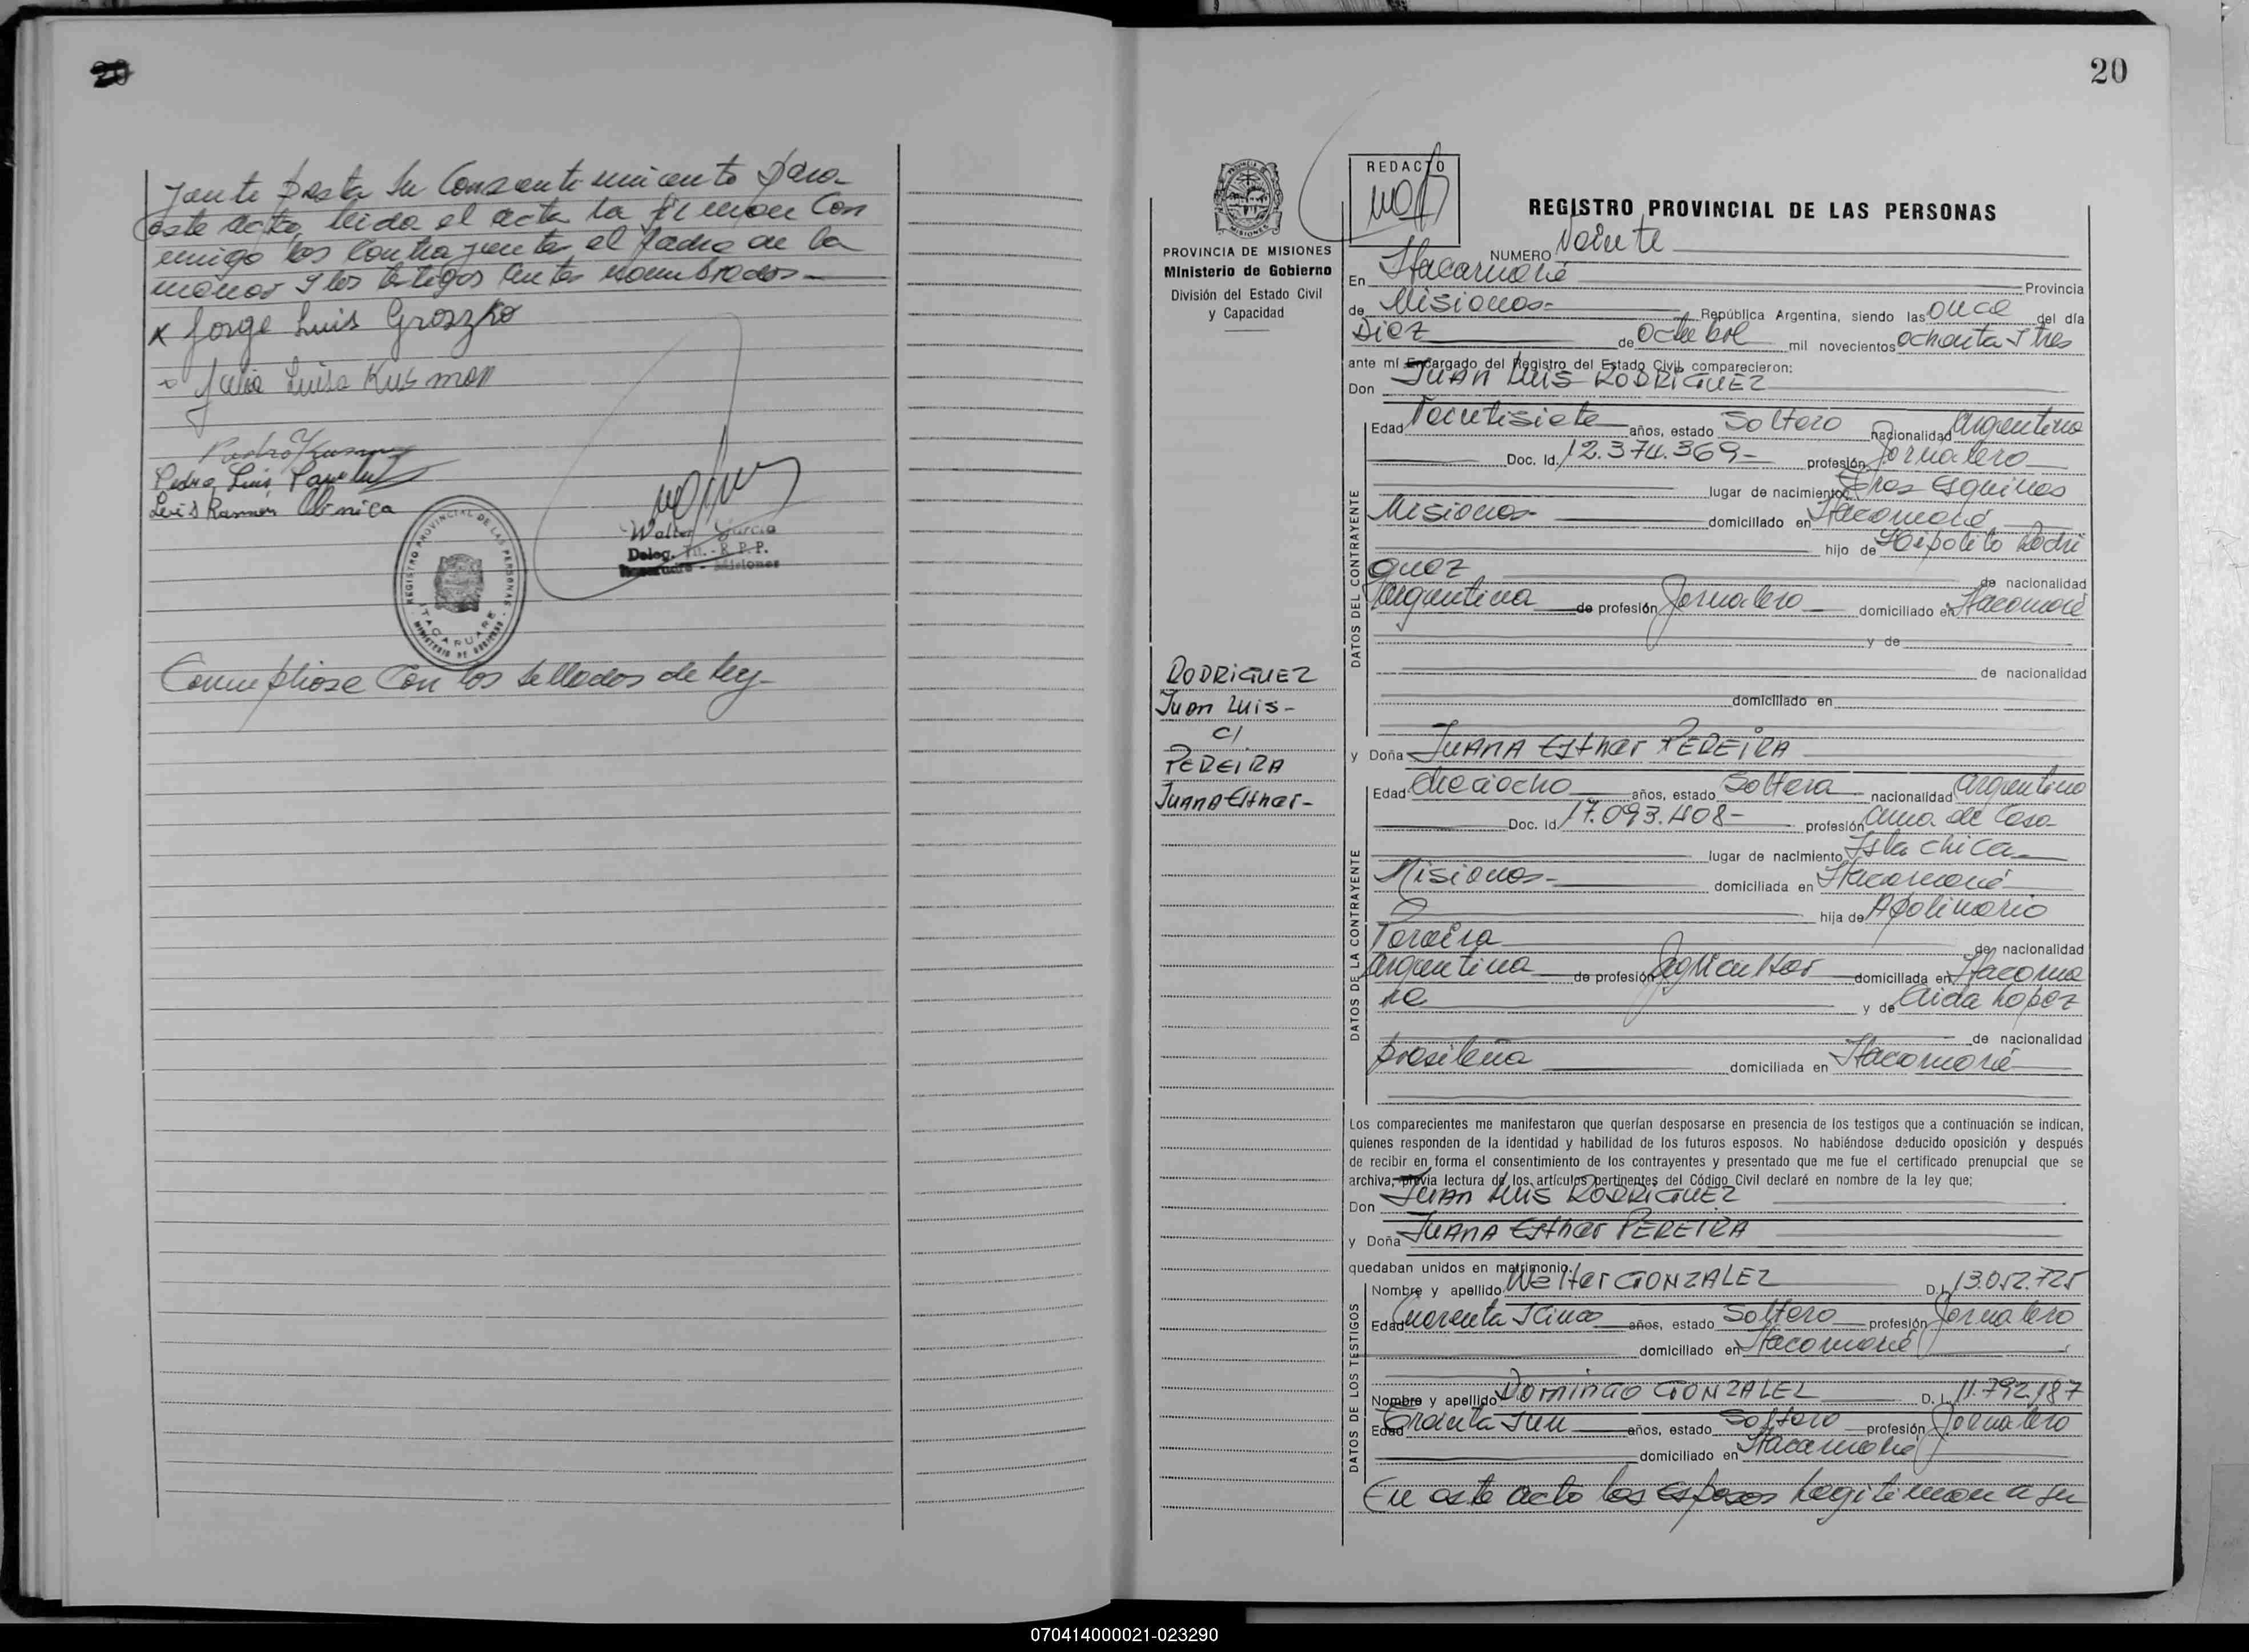 20
yente presta su Consentimiento para
este acto, leida el acta la firman Con
migo los Contrayentes el padre de la
menor y los testigos antes nombrados-
x Jorge Luis Groszko
Julia Luisa Kusman
Pedro Kusman
Pedro Luis
Luis Ramón Olinica
Walter Garcia
Deleg. Tit. - R. P. P.
Itacaruaré - Misiones
REGISTRO PROVINCIAL DE LAS PERSONAS
ITACARUARE
MINISTERIO DE GOBIERNO
Cumpliose Con los sellados de ley-
20
PROVINCIA DE MISIONES
Ministerio de Gobierno
División del Estado Civil
y Capacidad
RODRIGUEZ
Juan Luis-
c/
PEREIRA
Juana Esther-
REDACTO
REGISTRO PROVINCIAL DE LAS PERSONAS
NUMERO Veinte
En Itacaruaré Provincia
de Misiones- República Argentina, siendo las once del día
Diez de Octubre mil novecientos ochenta y tres
ante mí Encargado del Registro del Estado Civil, comparecieron:
Don JUAN LUIS RODRIGUEZ
DATOS DEL CONTRAYENTE
Edad Veintisiete años, estado Soltero nacionalidad Argentino
Doc. Id. 12.374.369- profesión Jornalero
lugar de nacimiento Tres Esquinas
Misiones- domiciliado en Itacaruaré
hijo de Hipolito Rodri
guez de nacionalidad
Argentina de profesión Jornalero domiciliado en Itacaruaré
y de
de nacionalidad
domiciliado en
y Doña JUANA Esther PEREIRA
DATOS DE LA CONTRAYENTE
Edad dieciocho años, estado Soltera nacionalidad Argentina
Doc. Id. 17.093.408- profesión Ama de Casa
lugar de nacimiento Isla chica
Misiones- domiciliada en Itacaruaré
hija de Apolinario
Pereira de nacionalidad
Argentina de profesión Agricultor domiciliada en Itacarua
ré y de Aida Lopez
de nacionalidad
brasileña domiciliada en Itacaruaré
Los comparecientes me manifestaron que querían desposarse en presencia de los testigos que a continuación se indican,
quienes responden de la identidad y habilidad de los futuros esposos. No habiéndose deducido oposición y después
de recibir en forma el consentimiento de los contrayentes y presentado que me fue el certificado prenupcial que se
archiva, previa lectura de los artículos pertinentes del Código Civil declaré en nombre de la ley que:
Don JUAN LUIS RODRIGUEZ
y Doña JUANA Esther PEREIRA
quedaban unidos en matrimonio.
DATOS DE LOS TESTIGOS
Nombre y apellido Walter GONZALEZ D.I. 13.052.725
Edad Cuarenta y Cinco años, estado Soltero profesión Jornalero
domiciliado en Itacaruaré
Nombre y apellido DOMINGO GONZALEZ D. I. 11.792.187
Edad Treinta y un años, estado Soltero profesión Jornalero
domiciliado en Itacaruaré
En este acto los esposos legitiman a su
070414000021-023290